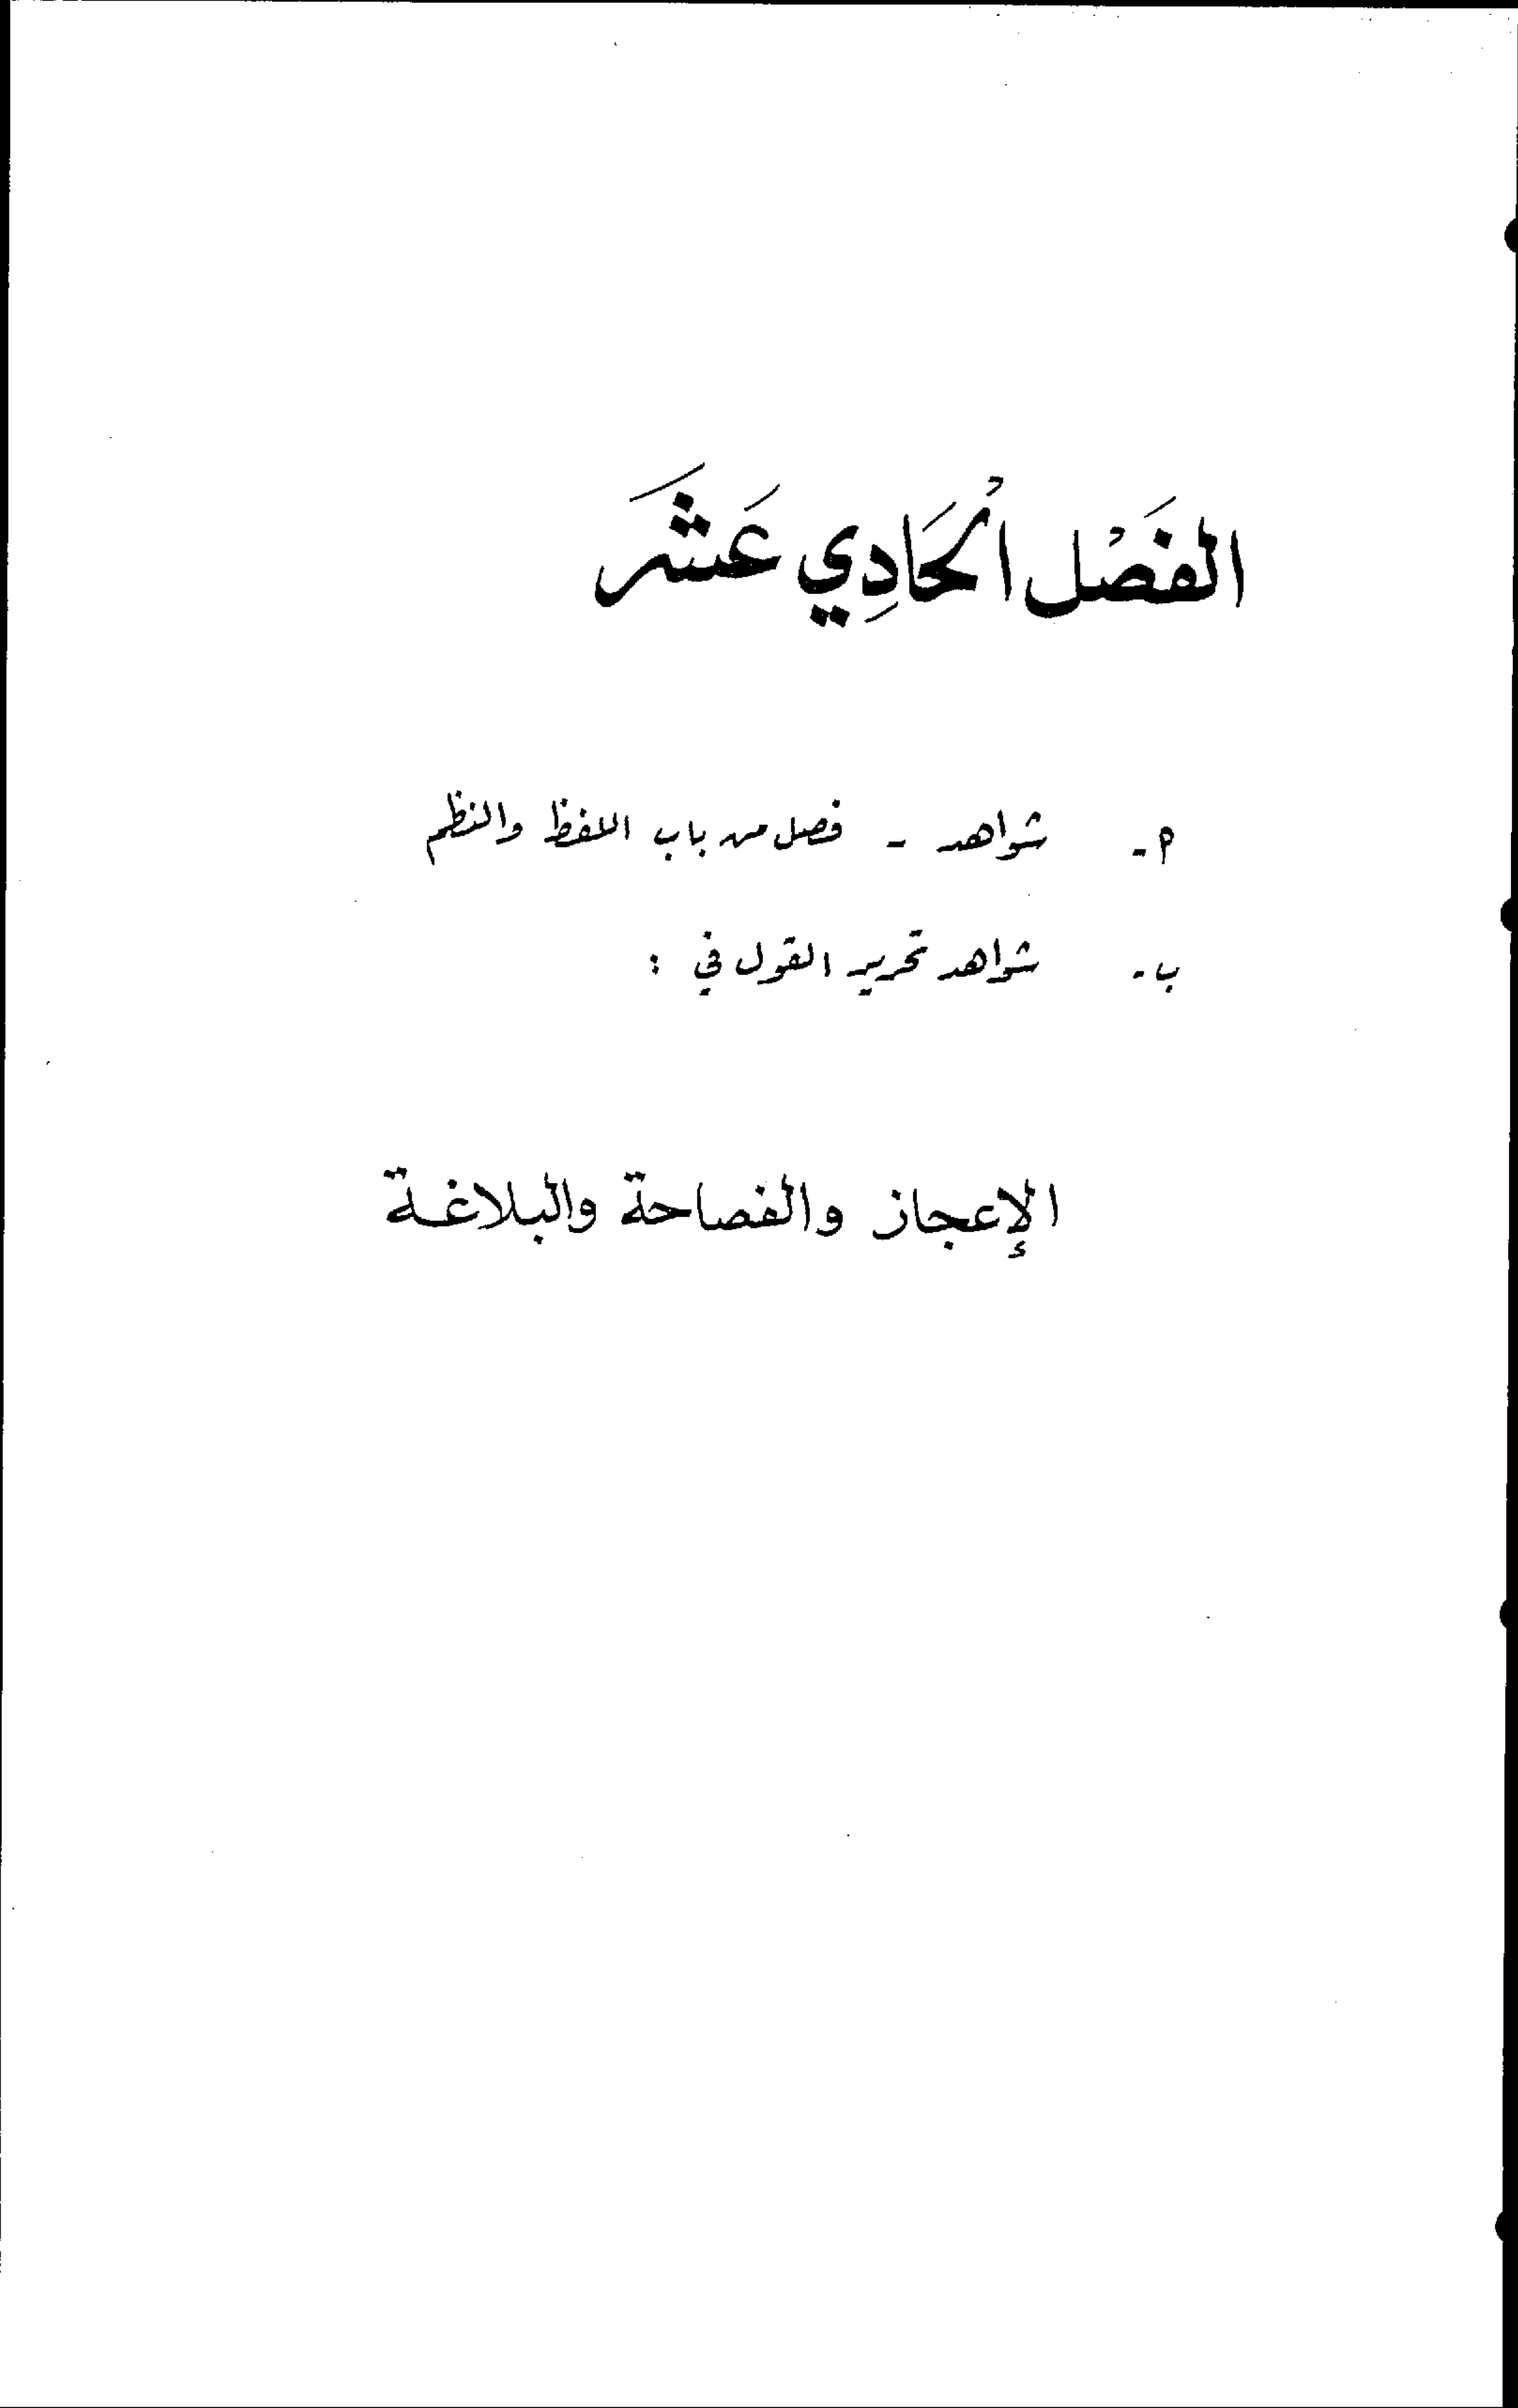 الفَصْل الْحَادِي عَشَرَ
م - شواهد - فصل من باب اللفظ والنظم
ب - شواهد تحرير القول في :
الإعجاز والفصاحة والبلاغة